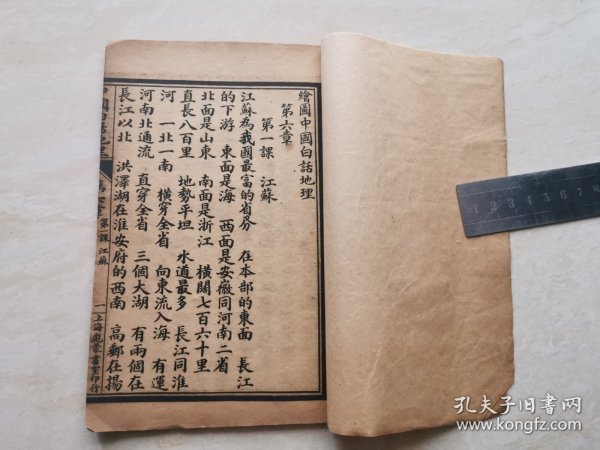 繪圖中國白話地理
第六章
第一課 江蘇
江蘇為我國最富的省份 在本部的東面 長江
的下游 東面是海 西面是安徽同河南二省
北面是山東 南面是浙江 橫闊七百六十里
直長八百里 地勢平坦 水道最多 長江同淮
河 一北一南 橫穿全省 向東流入海 有運
河南北通流 直穿全省 三個大湖 有兩個在
長江以北 洪澤湖在淮安府的西南 高郵在揚
中國白話地理 第六章 第一課 江蘇 一 上海彪蒙書室印行
1 2 3 4 5 6 7 8
孔夫子旧书网
www.kongfz.com